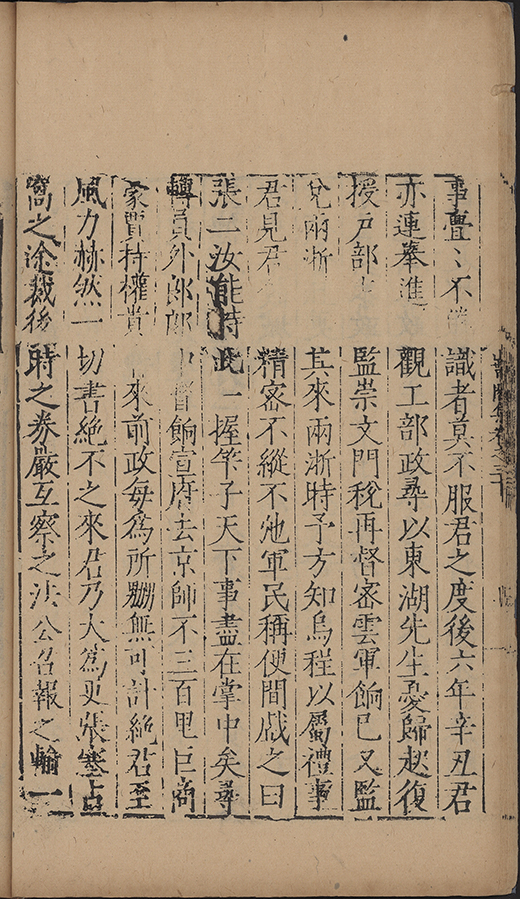 事亹〻不 識者莫不服君之度後六年辛丑君
亦連舉進 觀工部政尋以東湖先生憂歸起復
授戶部 監崇文門稅再督密雲軍餉已又監
兌兩浙 其來兩浙時予方知烏程以屬禮事
君見君 精密不縱不弛軍民稱便間戯之曰
張二汝能時 此一握竿子天下事盡在掌中矣尋
轉員外郎郎中督餉宣府去京師不三百里巨商
豪賈持權貴 來前政每爲所嬲無可計絕君至
風力赫然一切書絕不之來君乃大爲更張塞占
窩之途裁後時之劵嚴互察之法公召報之輸一